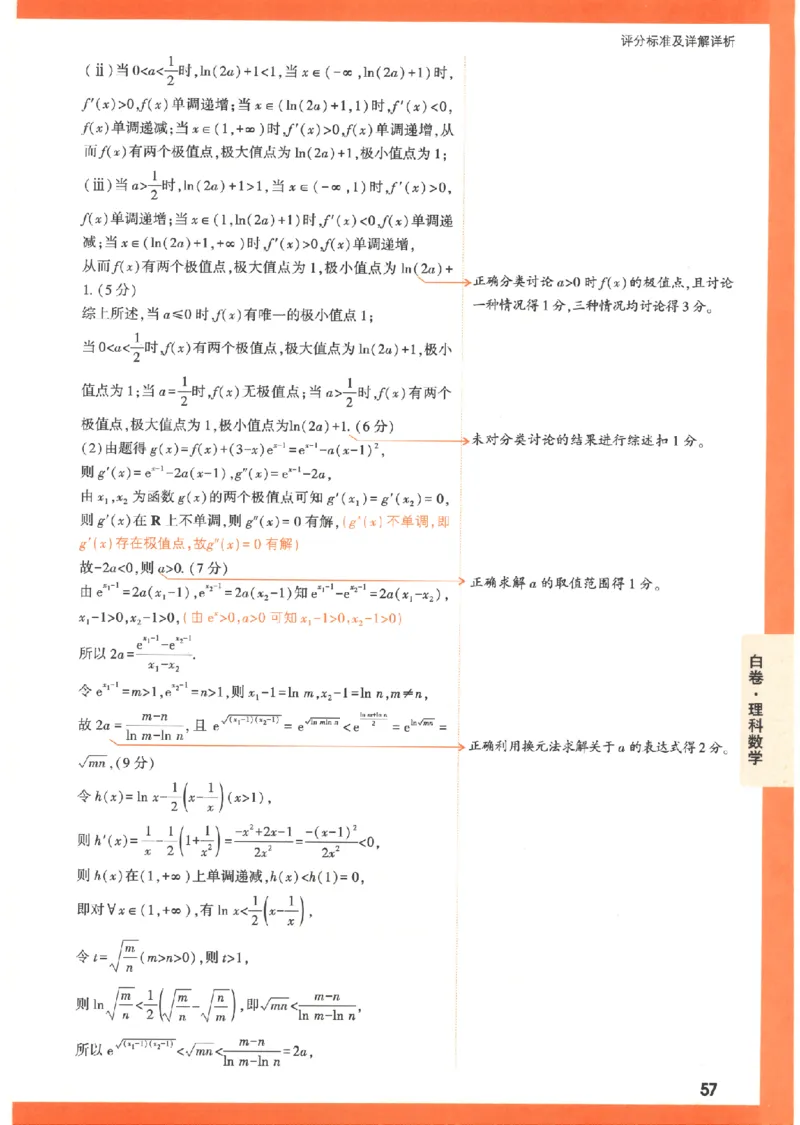 评分标准及详解详析
(ⅱ)当0<a<1/2时,ln(2a)+1<1,当x∈(-∞,ln(2a)+1)时,
f′(x)>0,f(x)单调递增;当x∈(ln(2a)+1,1)时,f′(x)<0,
f(x)单调递减;当x∈(1,+∞)时,f′(x)>0,f(x)单调递增,从
而f(x)有两个极值点,极大值点为ln(2a)+1,极小值点为1;
(ⅲ)当a>1/2时,ln(2a)+1>1,当x∈(-∞,1)时,f′(x)>0,
f(x)单调递增;当x∈(1,ln(2a)+1)时,f′(x)<0,f(x)单调递
减;当x∈(ln(2a)+1,+∞)时,f′(x)>0,f(x)单调递增,
从而f(x)有两个极值点,极大值点为1,极小值点为ln(2a)+
1.(5分)
正确分类讨论a>0时f(x)的极值点,且讨论
一种情况得1分,三种情况均讨论得3分。
综上所述,当a≤0时,f(x)有唯一的极小值点1;
当0<a<1/2时,f(x)有两个极值点,极大值点为ln(2a)+1,极小
值点为1;当a=1/2时,f(x)无极值点;当a>1/2时,f(x)有两个
极值点,极大值点为1,极小值点为ln(2a)+1.(6分)
未对分类讨论的结果进行综述扣1分。
(2)由题得g(x)=f(x)+(3-x)e^(x-1)=e^(x-1)-a(x-1)²,
则g′(x)=e^(x-1)-2a(x-1),g″(x)=e^(x-1)-2a,
由x₁,x₂为函数g(x)的两个极值点可知g′(x₁)=g′(x₂)=0,
则g′(x)在R上不单调,则g″(x)=0有解,(g′(x)不单调,即
g′(x)存在极值点,故g″(x)=0有解)
故-2a<0,则a>0.(7分)
正确求解a的取值范围得1分。
由e^(x₁-1)=2a(x₁-1),e^(x₂-1)=2a(x₂-1)知e^(x₁-1)-e^(x₂-1)=2a(x₁-x₂),
x₁-1>0,x₂-1>0,(由eˣ>0,a>0可知x₁-1>0,x₂-1>0)
所以2a=(e^(x₁-1)-e^(x₂-1))/(x₁-x₂).
令e^(x₁-1)=m>1,e^(x₂-1)=n>1,则x₁-1=ln m,x₂-1=ln n,m≠n,
故2a=(m-n)/(ln m-ln n),且e^√((x₁-1)(x₂-1))=e^√(ln mln n)<e^((ln m+ln n)/2)=e^(ln√(mn))=
√(mn),(9分)
正确利用换元法求解关于a的表达式得2分。
令h(x)=ln x-1/2(x-1/x)(x>1),
则h′(x)=1/x-1/2(1+1/x²)=(-x²+2x-1)/(2x²)=(-(x-1)²)/(2x²)<0,
则h(x)在(1,+∞)上单调递减,h(x)<h(1)=0,
即对∀x∈(1,+∞),有ln x<1/2(x-1/x),
令t=√(m/n)(m>n>0),则t>1,
则ln√(m/n)<1/2(√(m/n)-√(n/m)),即√(mn)<(m-n)/(ln m-ln n),
所以e^√((x₁-1)(x₂-1))<√(mn)<(m-n)/(ln m-ln n)=2a,
白卷·理科数学
57